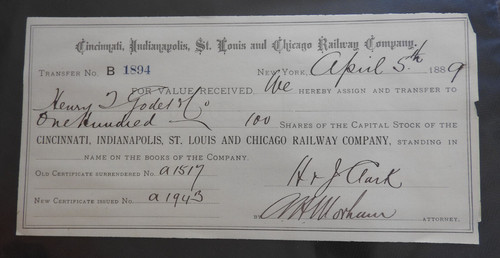 Cincinnati, Indianapolis, St. Louis and Chicago Railway Company.
TRANSFER NO. B 1894 NEW YORK, April 5th 1889
FOR VALUE RECEIVED, We HEREBY ASSIGN AND TRANSFER TO
Henry T Godet & Co
One Hundred 100 SHARES OF THE CAPITAL STOCK OF THE
CINCINNATI, INDIANAPOLIS, ST. LOUIS AND CHICAGO RAILWAY COMPANY, STANDING IN
NAME ON THE BOOKS OF THE COMPANY.
OLD CERTIFICATE SURRENDERED NO. a1517 H & J Clark
NEW CERTIFICATE ISSUED NO. a1943
BY ATTORNEY.